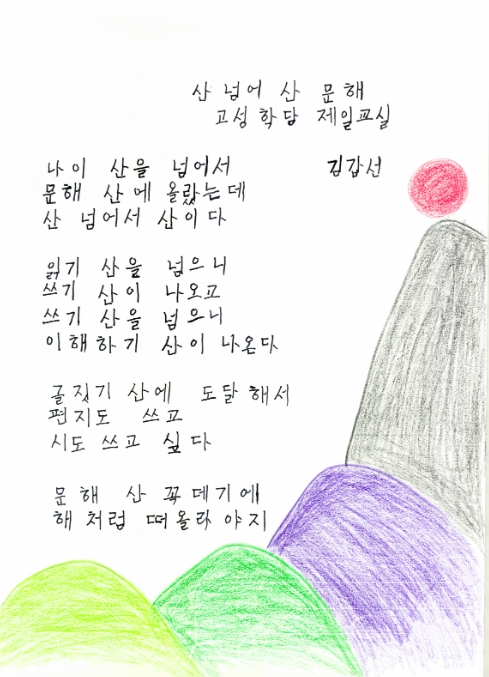 산 넘어 산 문해
고성 학당 제일교실
김갑선
나이 산을 넘어서
문해 산에 올랐는데
산 넘어서 산이다
읽기 산을 넘으니
쓰기 산이 나오고
쓰기 산을 넘으니
이해하기 산이 나온다
글짓기 산에 도달해서
편지도 쓰고
시도 쓰고 싶다
문해 산 꼭데기에
해처럼 떠올라야지